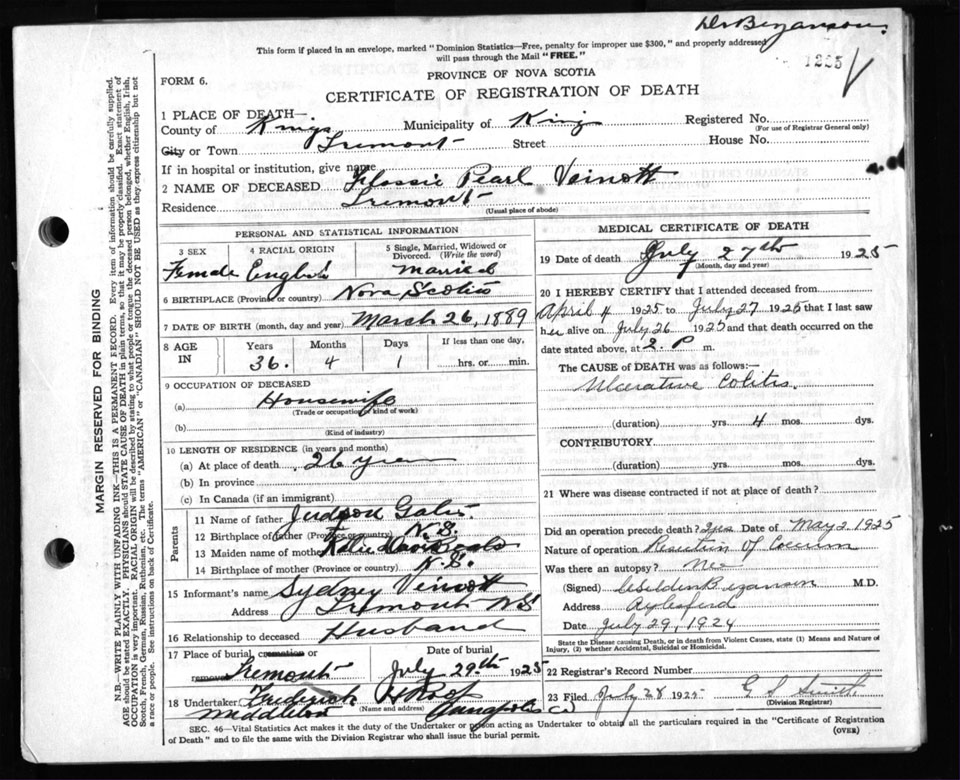 Dr Bezanson.
This form if placed in an envelope, marked "Dominion Statistics—Free, penalty for improper use $300," and properly addressed
will pass through the Mail "FREE."
1225
PROVINCE OF NOVA SCOTIA
FORM 6.
CERTIFICATE OF REGISTRATION OF DEATH
1 PLACE OF DEATH—
County of Kings Municipality of Kings Registered No.
(For use of Registrar General only)
City or Town Tremont Street House No.
If in hospital or institution, give name
2 NAME OF DECEASED Flossie Pearl Veinott
Residence Tremont
(Usual place of abode)
PERSONAL AND STATISTICAL INFORMATION
3 SEX 4 RACIAL ORIGIN 5 Single, Married, Widowed or Divorced. (Write the word)
Female English Married
6 BIRTHPLACE (Province or country) Nova Scotia
7 DATE OF BIRTH (month, day and year) March 26, 1889
8 AGE IN Years Months Days If less than one day,
36. 4 1 hrs. or min.
9 OCCUPATION OF DECEASED
(a) Housewife
(Trade or occupation or kind of work)
(b)
(Kind of industry)
10 LENGTH OF RESIDENCE (in years and months)
(a) At place of death 26 years
(b) In province
(c) In Canada (if an immigrant)
Parents
11 Name of father Judson
12 Birthplace of father (Province or country) N.S.
13 Maiden name of mother Katie
14 Birthplace of mother (Province or country) N.S.
15 Informant's name Sydney Veinott
Address Tremont NS
16 Relationship to deceased Husband
17 Place of burial, cremation or removal Tremont July 29th 1925
18 Undertaker Frederick
(Name and address)
Middleton Annapolis Co
MEDICAL CERTIFICATE OF DEATH
19 Date of death July 27th 1925
(Month, day and year)
20 I HEREBY CERTIFY that I attended deceased from
April 4 1925 to July 27 1925 that I last saw
her alive on July 26 1925 and that death occurred on the
date stated above, at 2. P m.
The CAUSE OF DEATH was as follows:—
Ulcerative Colitis.
(duration) yrs. 4 mos. dys.
CONTRIBUTORY
(duration) yrs. mos. dys.
21 Where was disease contracted if not at place of death?
Did an operation precede death? Yes Date of May 2, 1925
Nature of operation Resection of Coecum
Was there an autopsy? No
(Signed) Bezanson M.D.
Address Aylesford
Date July 29, 1924
State the Disease causing Death, or in death from Violent Causes, state (1) Means and Nature of Injury, (2) whether Accidental, Suicidal or Homicidal.
22 Registrar's Record Number
23 Filed July 28 1925 G S Smith
(Division Registrar)
SEC. 46—Vital Statistics Act makes it the duty of the Undertaker or person acting as Undertaker to obtain all the particulars required in the "Certificate of Registration
of Death" and to file the same with the Division Registrar who shall issue the burial permit. (OVER)
MARGIN RESERVED FOR BINDING
N.B.—WRITE PLAINLY WITH UNFADING INK—THIS IS A PERMANENT RECORD. Every item of information should be carefully supplied.
AGE should be stated EXACTLY. PHYSICIANS should STATE CAUSE OF DEATH in plain terms, so that it may be properly classified. Exact statement of
OCCUPATION is very important. RACIAL ORIGIN will be described by stating to what people or tongue the deceased person belonged, whether English, Irish,
Scotch, French, German, Russian, Ruthenian, etc. The terms "AMERICAN" or "CANADIAN" SHOULD NOT BE USED as they express citizenship but not
a race or people. See instructions on back of Certificate.